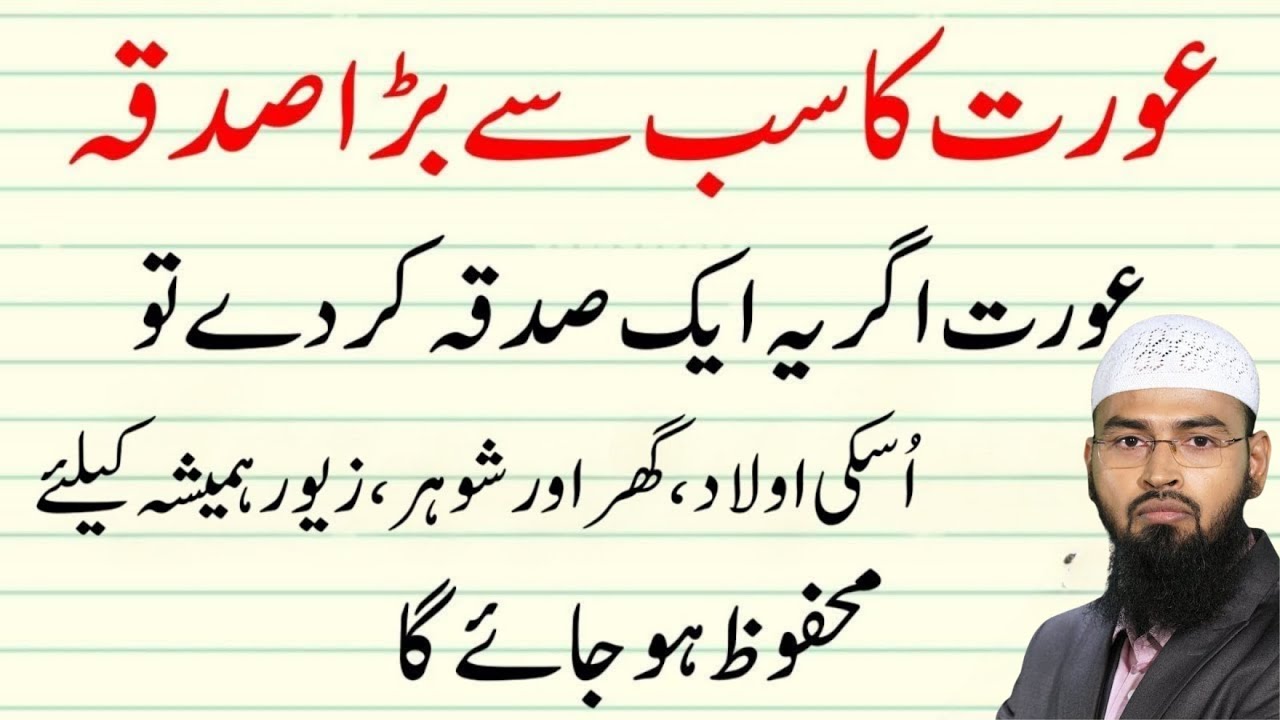 عورت کا سب سے بڑا صدقہ
عورت اگر یہ ایک صدقہ کر دے تو
اُسکی اولاد، گھر اور شوہر، زیور ہمیشہ کیلئے
محفوظ ہو جائے گا